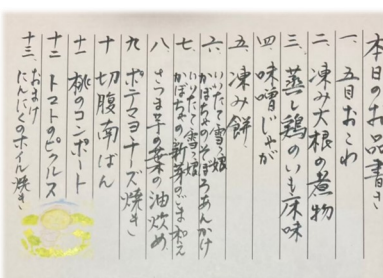 本日のお品書き
一、五目おこわ
二、凍み大根の煮物
三、蒸し鶏のいも床味
四、味噌じゃが
五、凍み餅
六、いいたて雪っ娘
かぼちゃのそぼろあんかけ
七、いいたて雪っ娘
かぼちゃの新芽のごま和え
八 さつま芋の葉の油炒め
九 ポテマヨナーズ焼き
十 切腹南ばん
十一 桃のコンポート
十二 トマトのピクルス
十三、おまけ
にんにくのホイル焼き